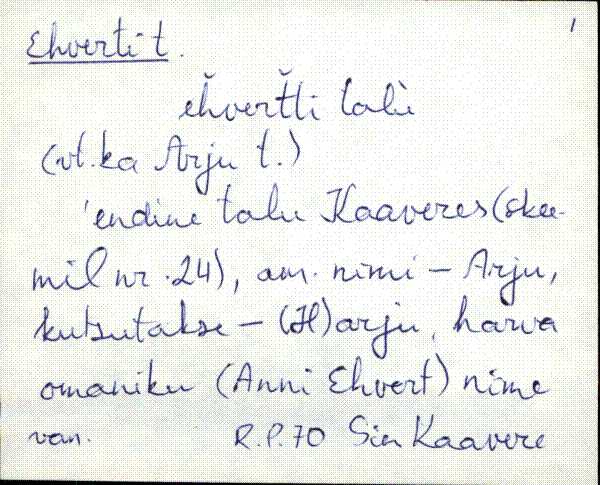 1
Ehverti t.
ehvertti talu
(vt. ka Arju t.)
'endine talu Kaaveres (skee-
mil nr. 24), am. nimi – Arju,
kutsutakse – (H)arju, harva
omaniku (Anni Ehvert) nime
van. R.P.70 Kaavere